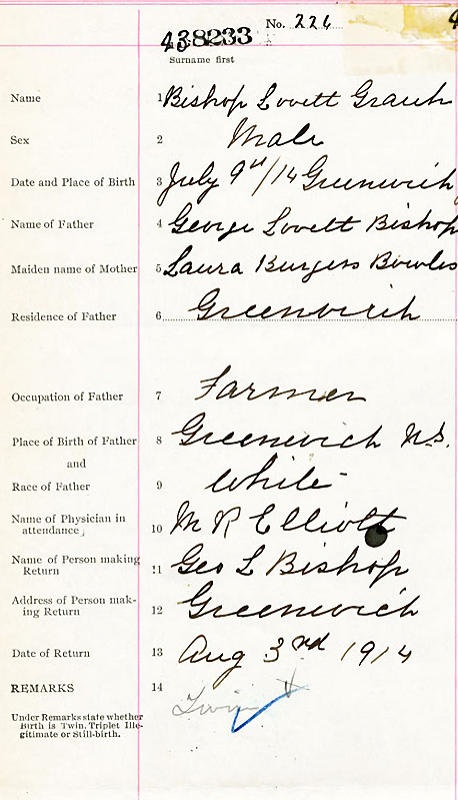 No. 226
438233
Surname first
Name 1 Bishop Lovett Grant
Sex 2 Male
Date and Place of Birth 3 July 9th/14 Greenwich
Name of Father 4 George Lovett Bishop
Maiden name of Mother 5 Laura Burgess Bowles
Residence of Father 6 Greenwich
Occupation of Father 7 Farmer
Place of Birth of Father 8 Greenwich N.S.
and
Race of Father 9 White
Name of Physician in
attendance 10 M R Elliott
Name of Person making
Return 11 Geo L Bishop
Address of Person mak-
ing Return 12 Greenwich
Date of Return 13 Aug 3rd 1914
REMARKS 14 Twin
Under Remarks state whether
Birth is Twin, Triplet Ille-
gitimate or Still-birth.